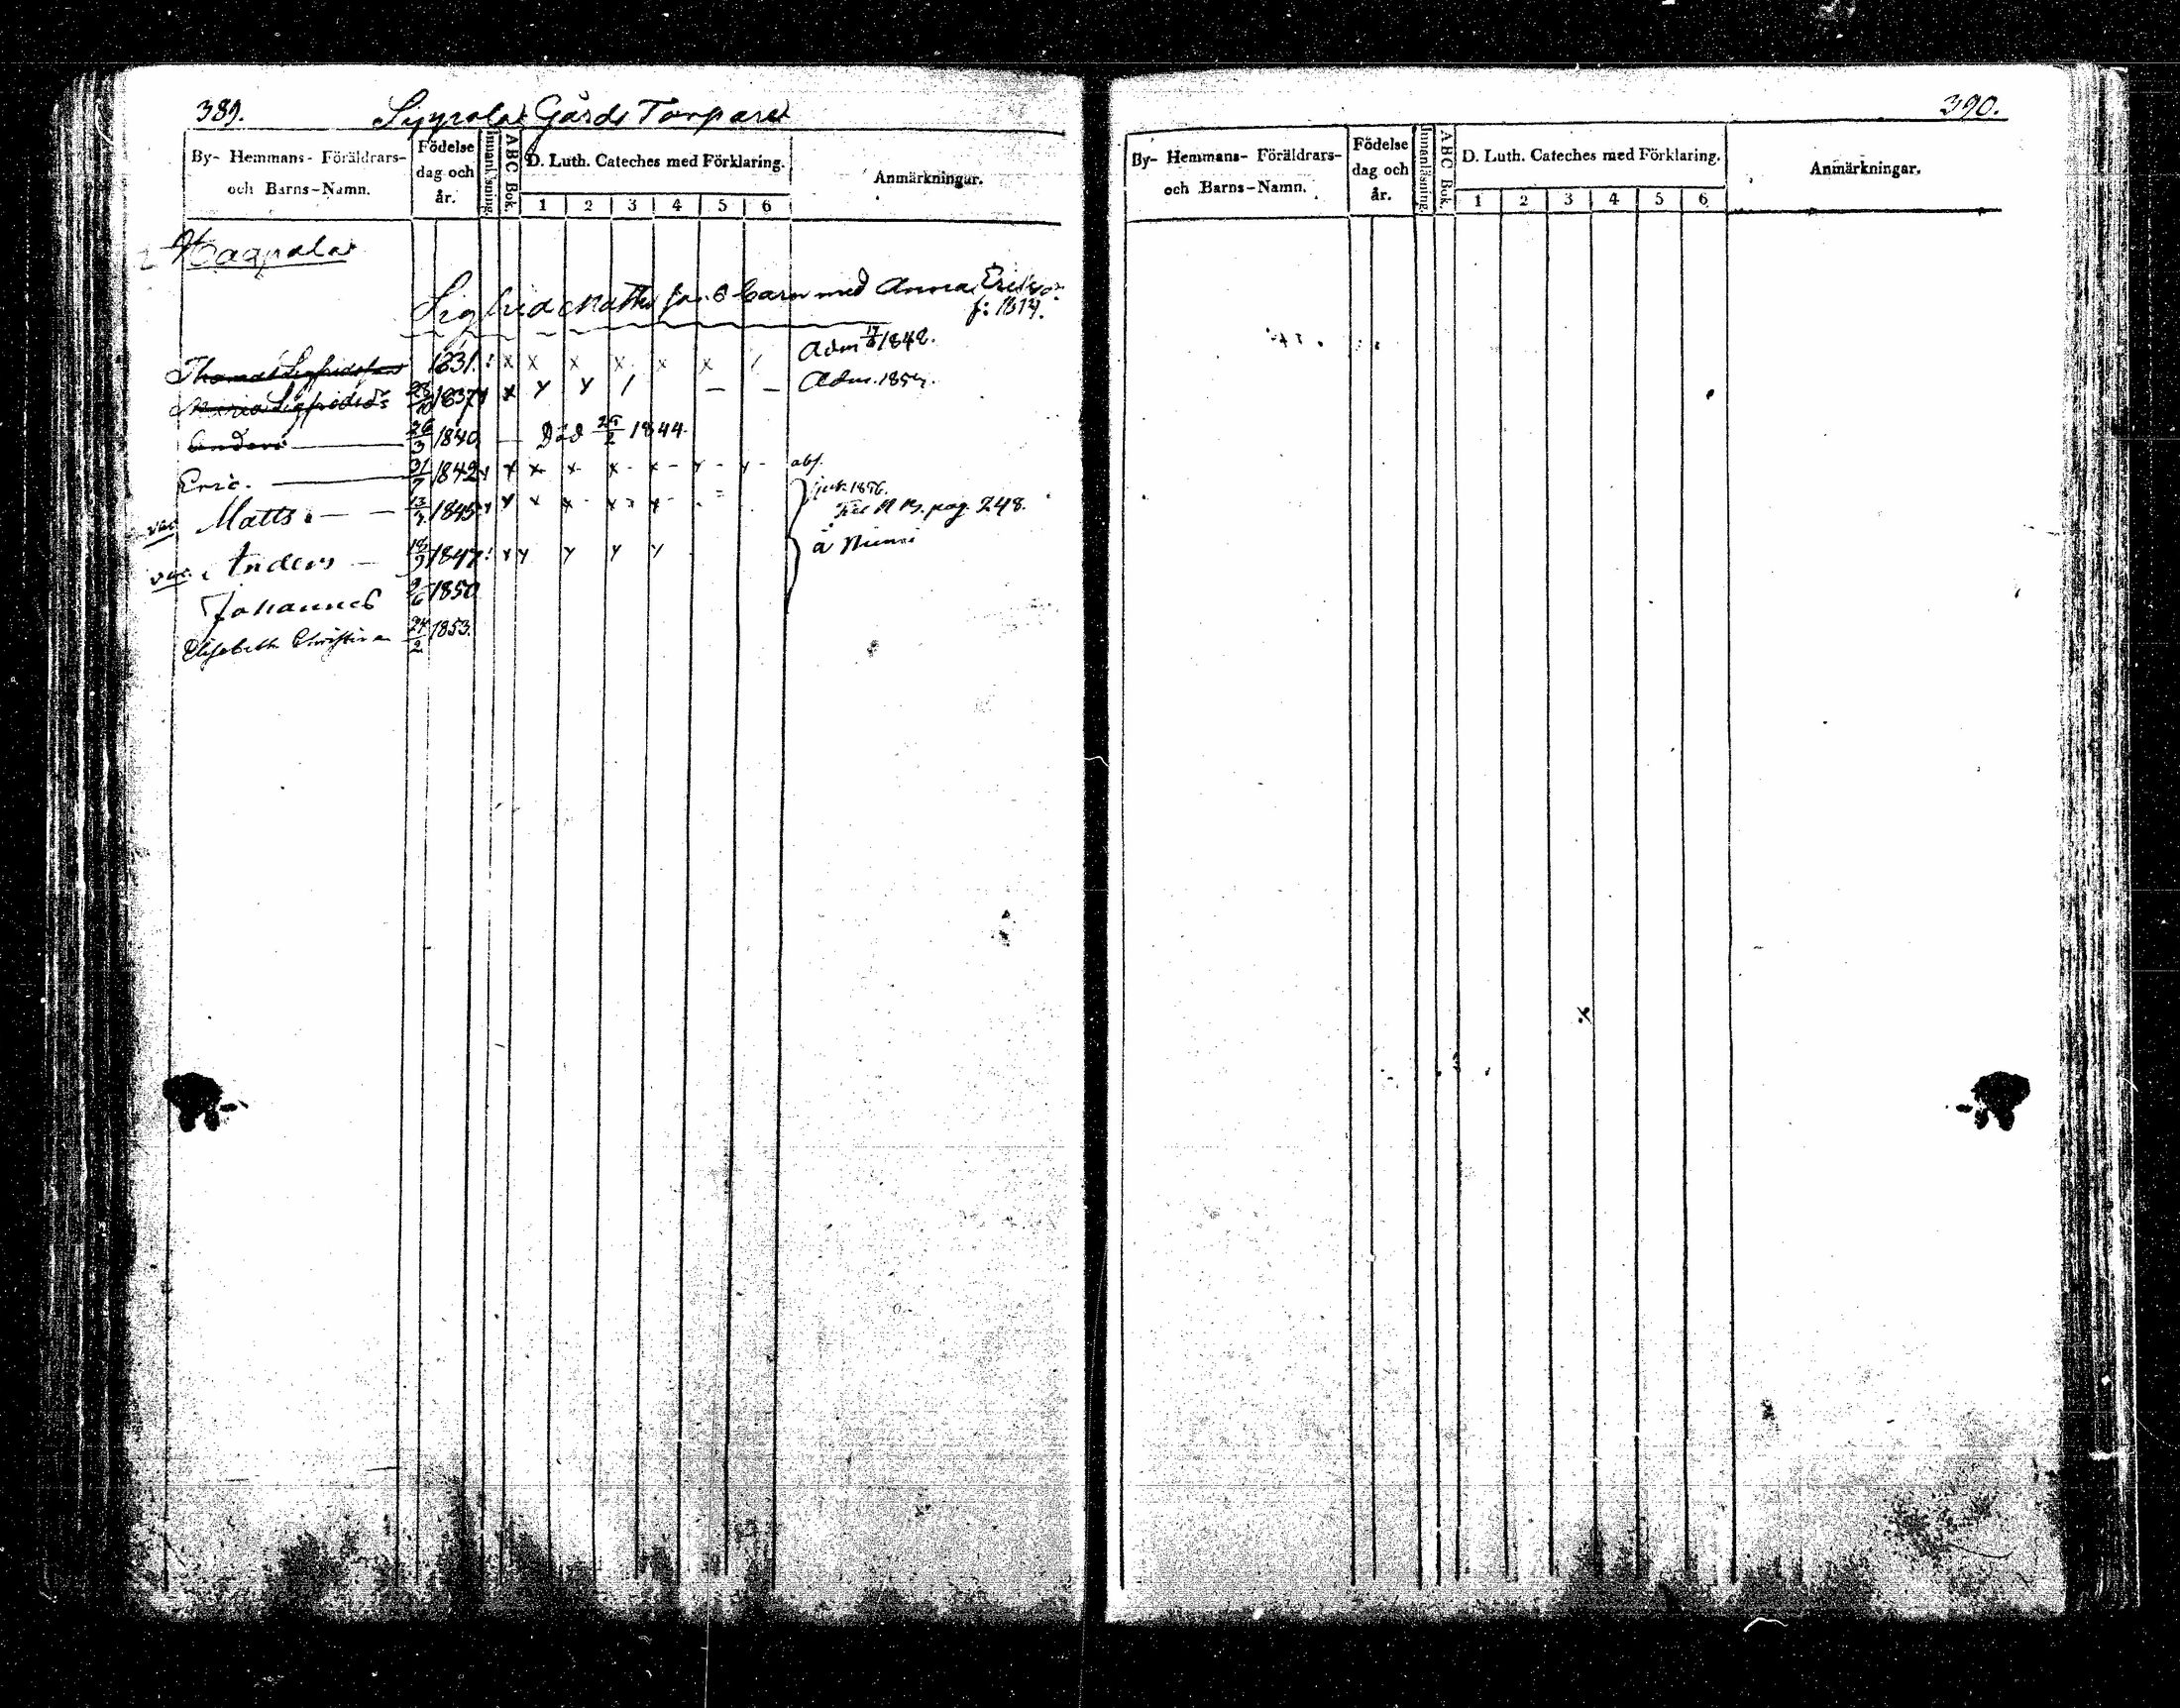 389. Syyrola Gårds Torpare
By- Hemmans- Föräldrars- och Barns-Namn.
Födelse dag och år.
Innanläsning.
ABC Bok.
D. Luth. Cateches med Förklaring.
1 2 3 4 5 6
Anmärkningar.
Haapala
Sigfrid Matts barn med Anna Eriks
f: 1814.
Thomas Sigfridsson 1831. x x x x x x / Adm 1848.
Maria Sigfridsd:r 1837 x x y y / — — Adm. 1854.
Anders — 26/3 1840 — Död 25/2 1844
Eric. — 31/7 1842 x x x x x x y y abf.
Matts. — — 13/7 1845 y y x x x x 1856.
pag. 248.
Anders — 1847 y y y y y å
Johannes 2/6 1850
Elisabeth Christina 24/2 1853.
390.
By- Hemmans- Föräldrars- och Barns-Namn.
Födelse dag och år.
Innanläsning.
ABC Bok.
D. Luth. Cateches med Förklaring.
1 2 3 4 5 6
Anmärkningar.